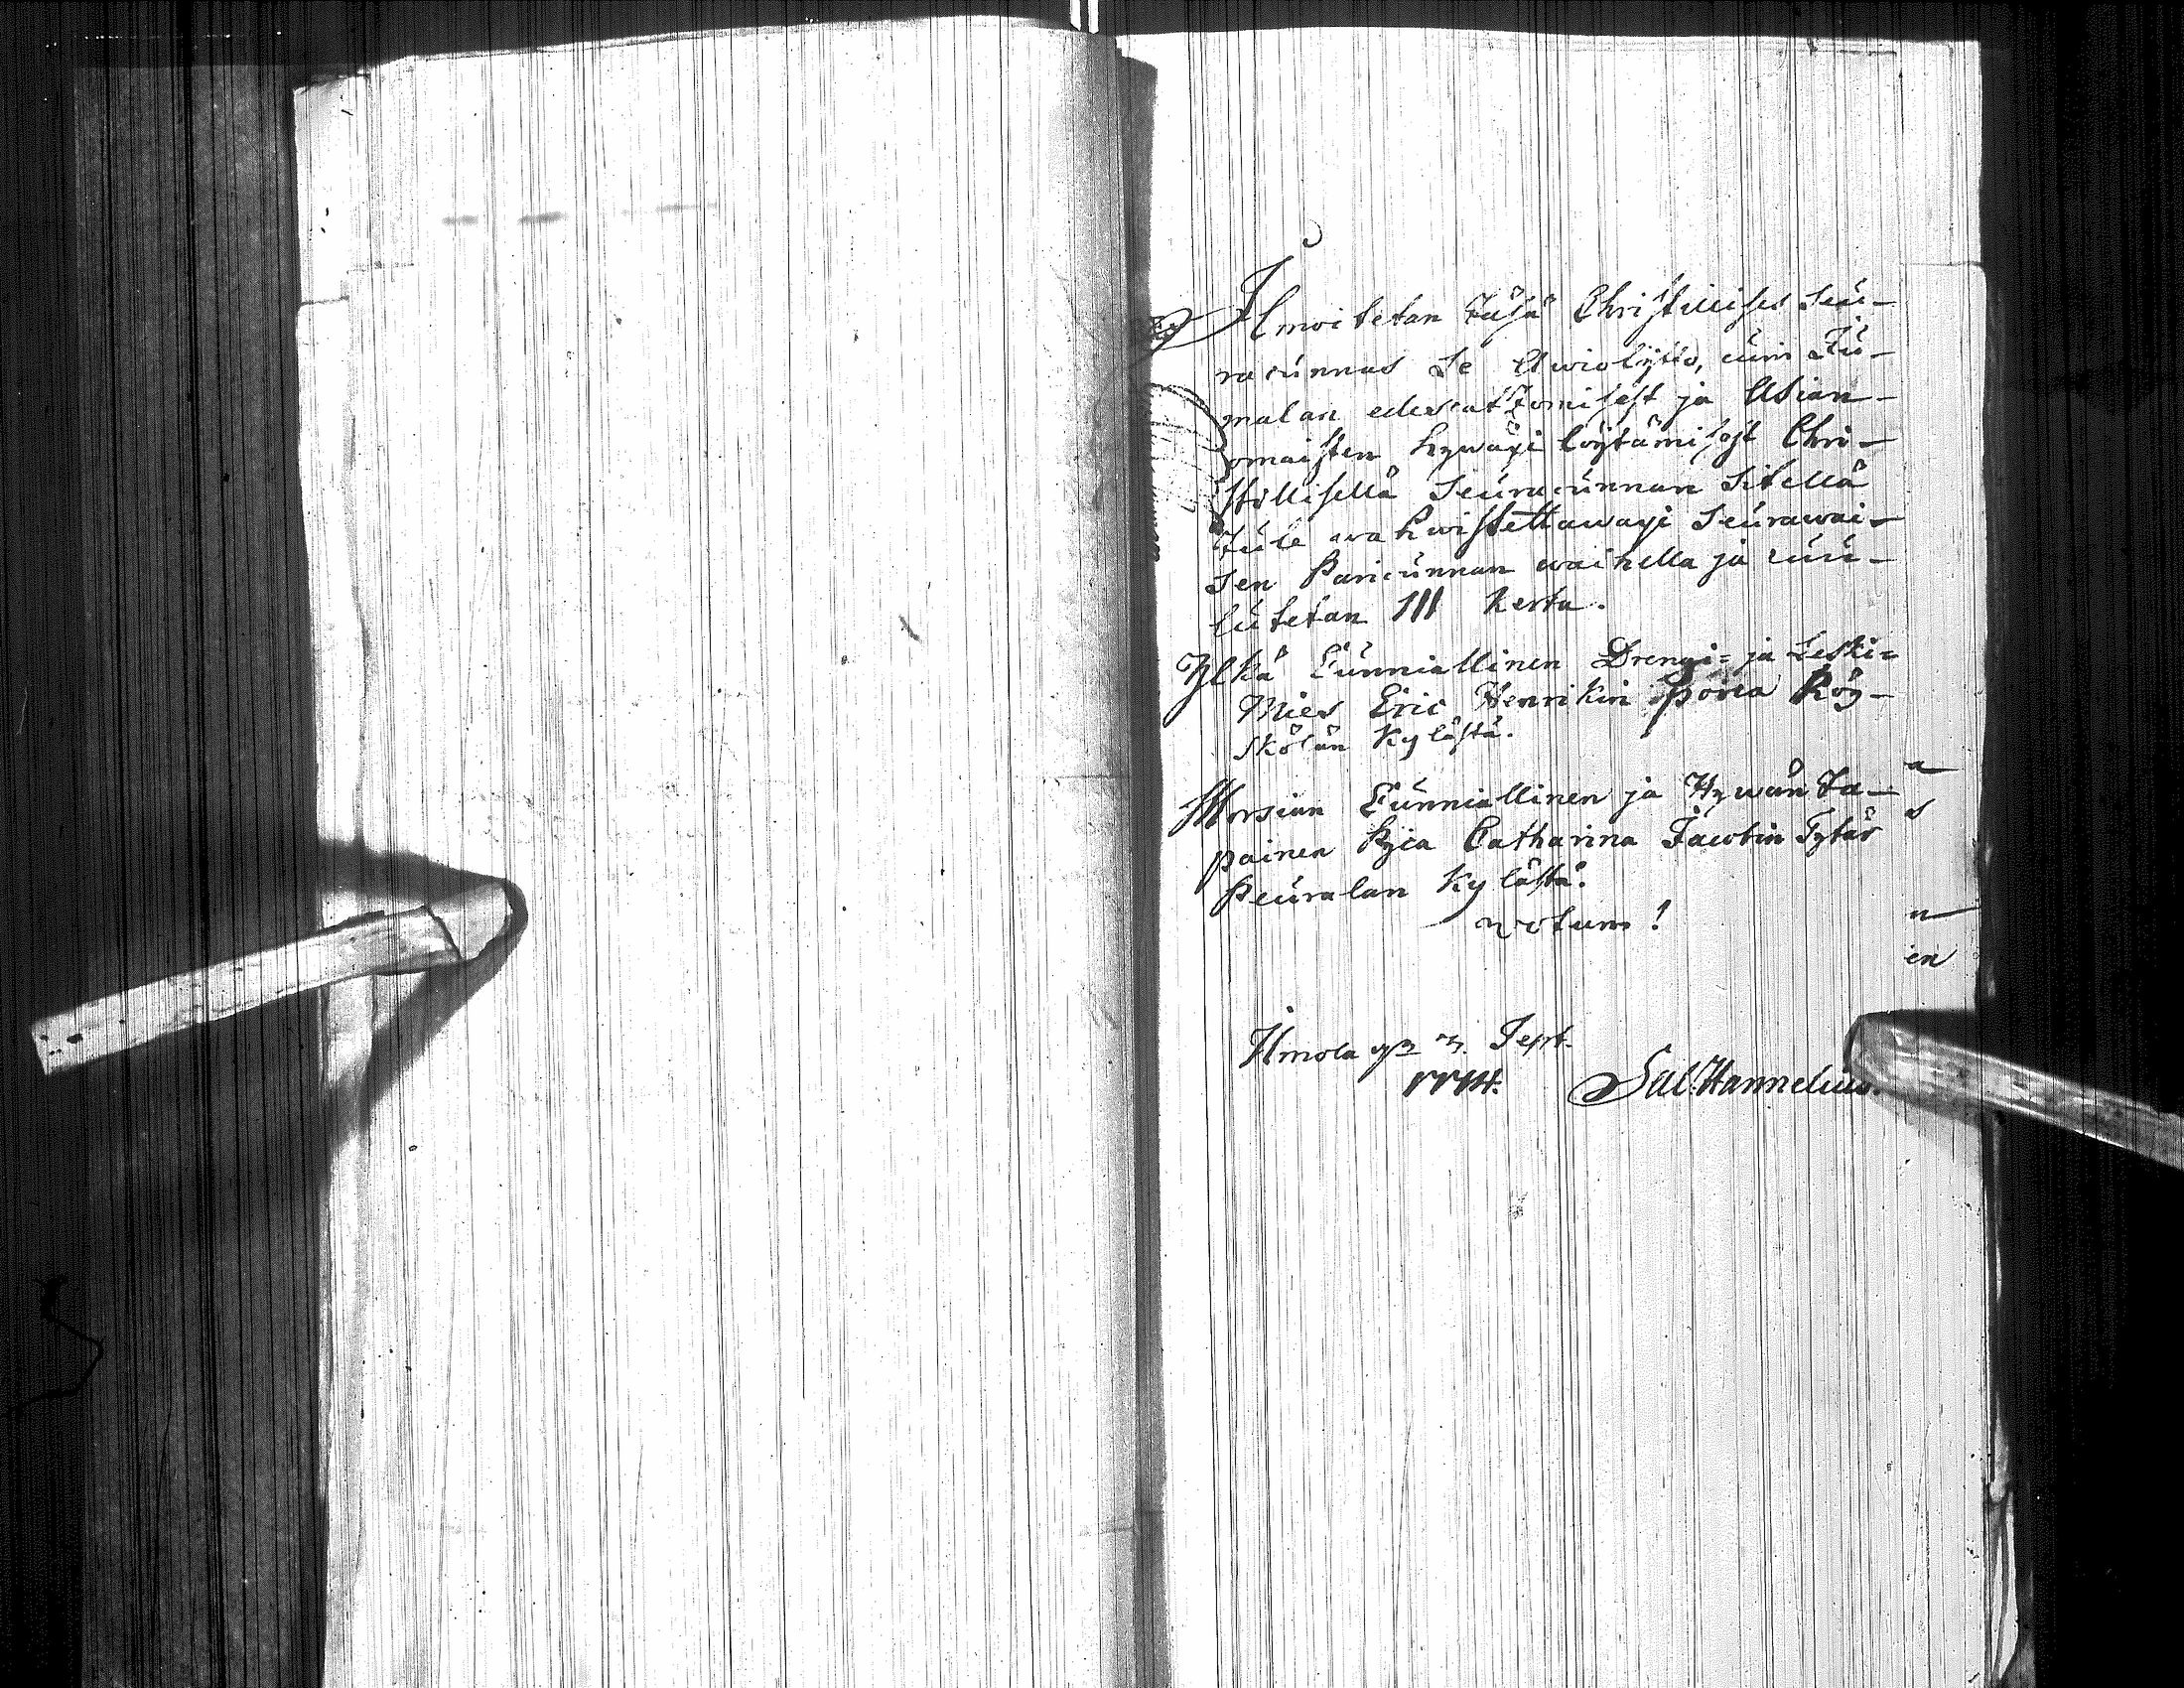 Ilmoitetan Täsä Christillises Seu-
racunnas Se Awiokäytös, cuin Ju-
malan edescatzomisest ja Asian-
omaisten hywäxi löytämisest Chri-
stillisellä Seuracunnan Sitellä
tule wahwistettawaxi Seurawai-
sen Pariscunnan waihella ja cuu-
lutetan III Kerta.
Ylkä Cunniallinen Drengi= ja Leski=
Mies Eric Henrikin poica Köy-
skölän Kylästä.
Morsian Cunniallinen ja Hywän Ta-
painen Pijca Catharina Jacobin Tytär
Peuralan Kylästä.
votum!
a
s
n
en
Ilmola Sept.
Sal. Hannelius.